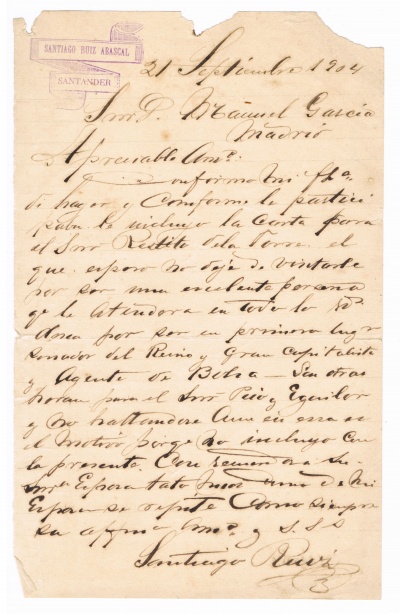 SANTIAGO RUIZ ABASCAL
SANTANDER
21 Septiembre 1904
Snr D. Manuel Garcia
Madrid
Apresiable Amº.
Conforme mi fha
de hayer y Comforme le partici
paba le incluyo la Carta para
el Snr de la Torre el
que espero no deje de
por ser una excelente persona
qe le atendera en todo lo
desea por ser en primera lugr
senador del Reino y Gran Capitalista
y Agente de Bolsa — Las otras
heran para el Snr Pico y Eguilor
y no hallandose Aun en esa es
el motivo porqe no incluyo con
la presente. Con a su
Snra Espora
Esposa se repite Como siempre
su affmo Amº. y S. S. S
Santiago Ruiz